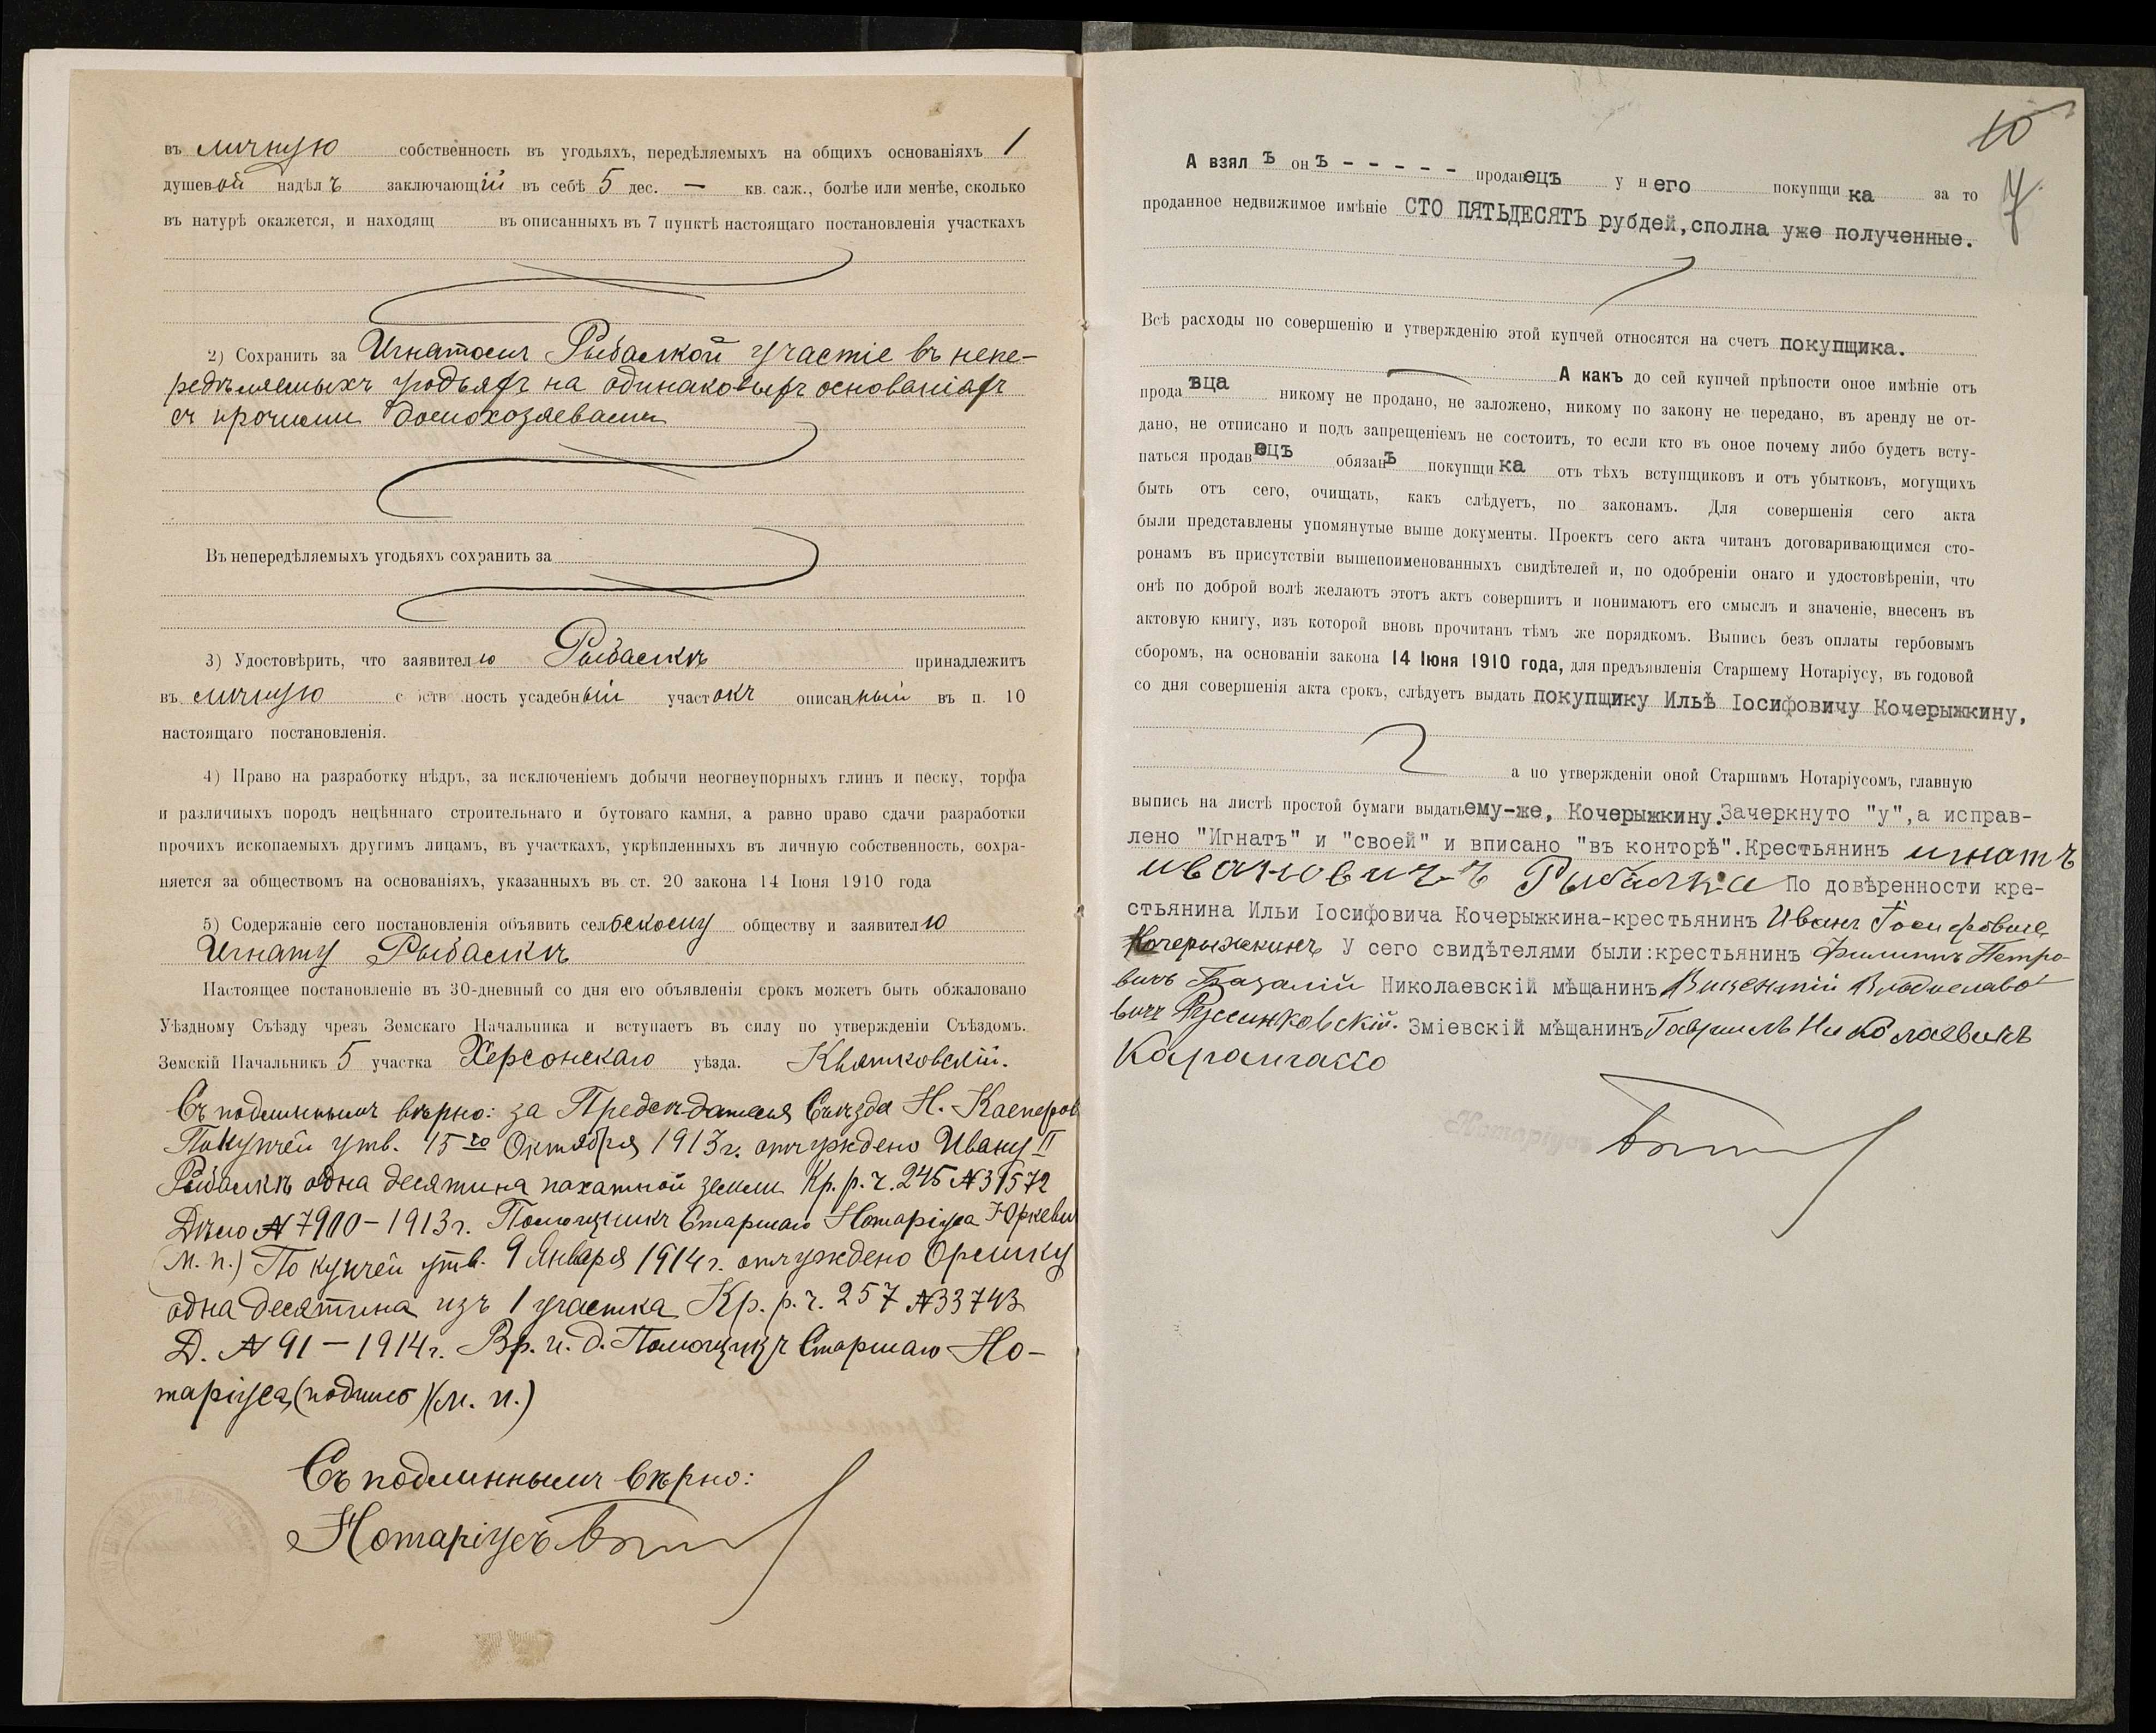 въ личную собственность въ угодьяхъ, передѣляемыхъ на общихъ основаніяхъ 1
душевой надѣлъ заключающій въ себѣ 5 дес. — кв. саж., болѣе или менѣе, сколько
въ натурѣ окажется, и находящ въ описанныхъ въ 7 пунктѣ настоящаго постановленія участкахъ
2) Сохранить за Игнатомъ Рыбалкой участіе въ непе-
редѣляемыхъ угодьяхъ на одинаковыхъ основаніяхъ
съ прочими домохозяевами
Въ непередѣляемыхъ угодьяхъ сохранить за
3) Удостовѣрить, что заявителю Рыбалкѣ принадлежитъ
въ личную собственность усадебный участокъ описанный въ п. 10
настоящаго постановленія.
4) Право на разработку нѣдръ, за исключеніемъ добычи неогнеупорныхъ глинъ и песку, торфа
и различныхъ породъ нецѣннаго строительнаго и бутоваго камня, а равно право сдачи разработки
прочихъ ископаемыхъ другимъ лицамъ, въ участкахъ, укрѣпленныхъ въ личную собственность, сохра-
няется за обществомъ на основаніяхъ, указанныхъ въ ст. 20 закона 14 Іюня 1910 года
5) Содержаніе сего постановленія объявить сельскому обществу и заявителю
Игнату Рыбалкѣ
Настоящее постановленіе въ 30-дневный со дня его объявленія срокъ можетъ быть обжаловано
Уѣздному Съѣзду чрезъ Земскаго Начальника и вступаетъ въ силу по утвержденіи Съѣздомъ.
Земскій Начальникъ 5 участка Херсонскаго уѣзда. Квятковскій.
Съ подлиннымъ вѣрно: за Предсѣдателя Съѣзда Н. Касперов
По купчей утв. 15го Октября 1913г. отчуждено Ивану II
Рыбалкѣ одна десятина пахатной земли Кр. р. ч. 245 №31572
Дѣло №7900-1913г. Помощникъ Старшаго Нотаріуса Юркеви
(м. п.) По купчей утв. 9 Января 1914г. отчуждено Орлику
одна десятина изъ 1 участка Кр. р. ч. 257 №33743
Д. №91-1914г. Вр. и. д. Помощника Старшаго Но-
таріуса, (подпись)(м. п.)
Съ подлиннымъ вѣрно:
Нотаріусъ
10
7
А взялъ онъ - - - - - продавецъ у него покупщика за то
проданное недвижимое имѣніе СТО ПЯТЬДЕСЯТЪ рубдей,сполна уже полученные.
Всѣ расходы по совершенію и утвержденію этой купчей относятся на счетъ покупщика.
А какъ до сей купчей прѣпости оное имѣніе отъ
продавца никому не продано, не заложено, никому по закону не передано, въ аренду не от-
дано, не отписано и подъ запрещеніемъ не состоитъ, то если кто въ оное почему либо будетъ всту-
паться продавецъ обязанъ покупщика отъ тѣхъ вступщиковъ и отъ убытковъ, могущихъ
быть отъ сего, очищать, какъ слѣдуетъ, по законамъ. Для совершенія сего акта
были представлены упомянутые выше документы. Проектъ сего акта читанъ договаривающимся сто-
ронамъ въ присутствіи вышепоименованныхъ свидѣтелей и, по одобреніи онаго и удостовѣреніи, что
онѣ по доброй волѣ желаютъ этотъ актъ совершить и понимаютъ его смыслъ и значеніе, внесенъ въ
актовую книгу, изъ которой вновь прочитанъ тѣмъ же порядкомъ. Выпись безъ оплаты гербовымъ
сборомъ, на основаніи закона 14 Іюня 1910 года, для предъявленія Старшему Нотаріусу, въ годовой
со дня совершенія акта срокъ, слѣдуетъ выдать покупщику Ильѣ Іосифовичу Кочерыжкину,
а по утвержденіи оной Старшимъ Нотаріусомъ, главную
выпись на листѣ простой бумаги выдать ему-же, Кочерыжкину.Зачеркнуто "у",а исправ-
лено "Игнатъ" и "своей" и вписано "въ конторѣ".Крестьянинъ игнатъ
ивановичъ Рыбалка По довѣренности кре-
стьянина Ильи Іосифовича Кочерыжкина-крестьянинъ Иванъ Іосифовичъ
Кочерыжкинъ У сего свидѣтелями были:крестьянинъ Филиппъ Петро-
вичъ Базалій Николаевскій мѣщанинъ Викентій Владиславо-
вичъ Зміевскій мѣщанинъ Гавриилъ Николаевичъ
Нотаріусъ